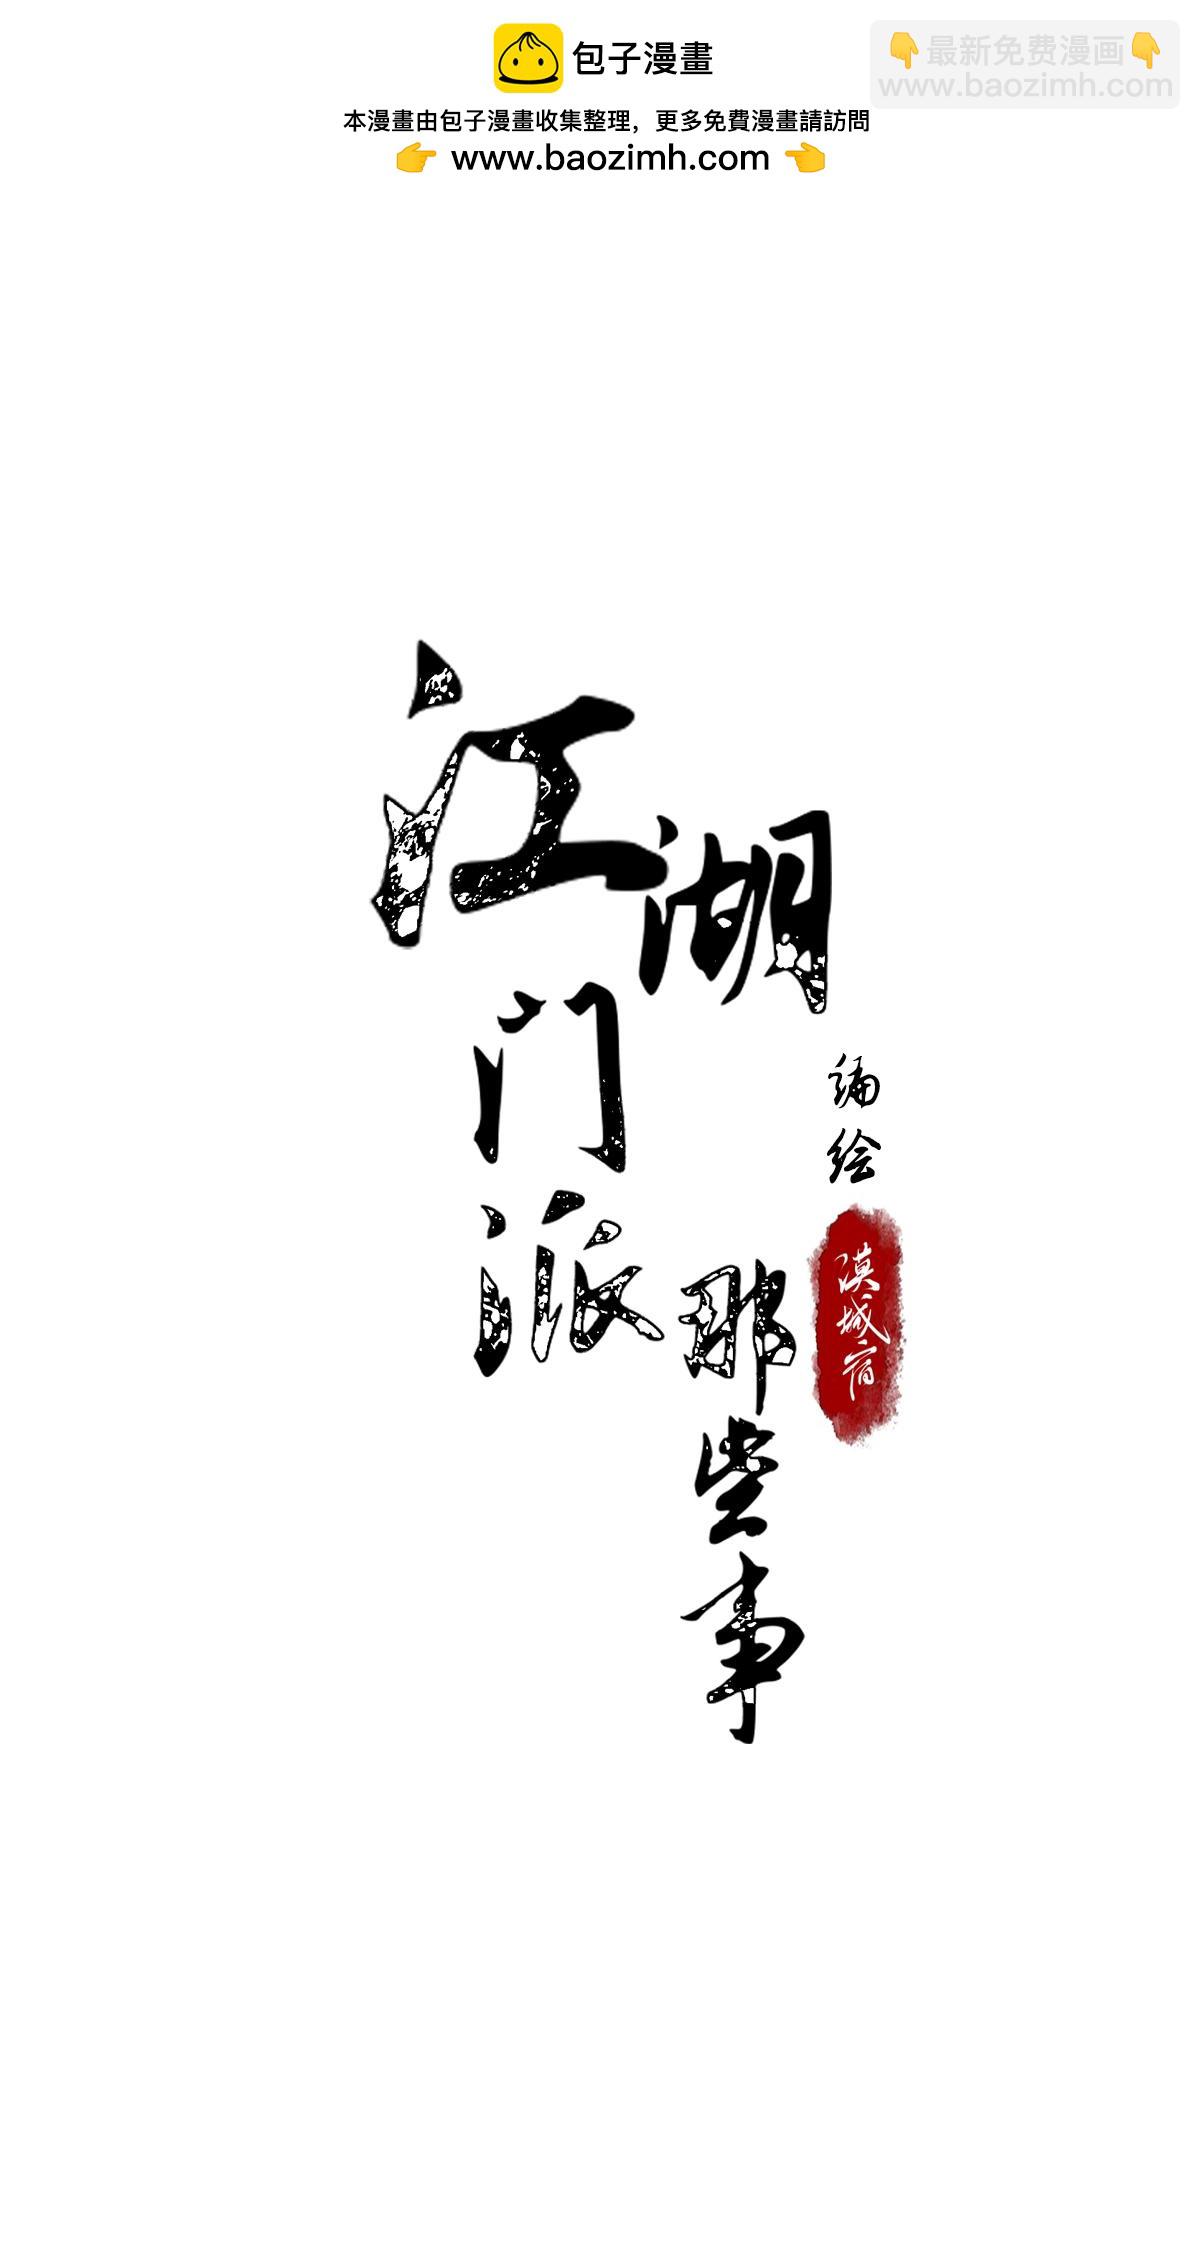 包子漫畫
👇最新免费漫画👇
www.baozimh.com
本漫畫由包子漫畫收集整理，更多免費漫畫請訪問
👉 www.baozimh.com 👈
江湖
门派
那些事
编绘
漠城宿